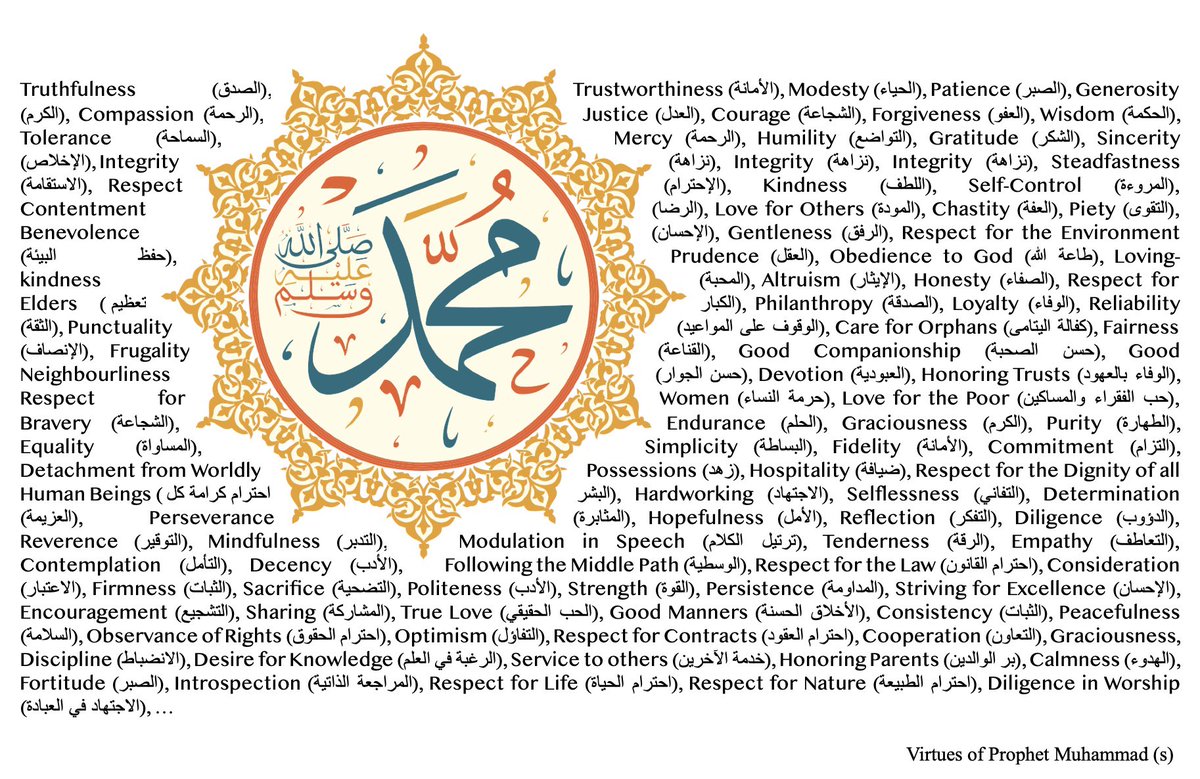 Truthfulness (الصدق), Trustworthiness (الأمانة), Modesty (الحياء), Patience (الصبر), Generosity
(الكرم), Compassion (الرحمة), Justice (العدل), Courage (الشجاعة), Forgiveness (العفو), Wisdom (الحكمة),
Tolerance (السماحة), Mercy (الرحمة), Humility (التواضع), Gratitude (الشكر), Sincerity
(الإخلاص), Integrity (نزاهة), Integrity (نزاهة), Integrity (نزاهة), Steadfastness
(الاستقامة), Respect (الإحترام), Kindness (اللطف), Self-Control (المروءة),
Contentment (الرضا), Love for Others (المودة), Chastity (العفة), Piety (التقوى),
Benevolence (الإحسان), Gentleness (الرفق), Respect for the Environment
(حفظ البيئة), Prudence (العقل), Obedience to God (طاعة الله), Loving-
kindness (المحبة), Altruism (الإيثار), Honesty (الصفاء), Respect for
Elders (تعظيم الكبار), Philanthropy (الصدقة), Loyalty (الوفاء), Reliability
(الثقة), Punctuality (الوقوف على المواعيد), Care for Orphans (كفالة اليتامى), Fairness
(الإنصاف), Frugality (القناعة), Good Companionship (حسن الصحبة), Good
Neighbourliness (حسن الجوار), Devotion (العبودية), Honoring Trusts (الوفاء بالعهود),
Respect for Women (حرمة النساء), Love for the Poor (حب الفقراء والمساكين),
Bravery (الشجاعة), Endurance (الحلم), Graciousness (الكرم), Purity (الطهارة),
Equality (المساواة), Simplicity (البساطة), Fidelity (الأمانة), Commitment (التزام),
Detachment from Worldly Possessions (زهد), Hospitality (ضيافة), Respect for the Dignity of all
Human Beings (احترام كرامة كل البشر), Hardworking (الاجتهاد), Selflessness (التفاني), Determination
(العزيمة), Perseverance (المثابرة), Hopefulness (الأمل), Reflection (التفكر), Diligence (الدؤوب),
Reverence (التوقير), Mindfulness (التدبر), Modulation in Speech (ترتيل الكلام), Tenderness (الرقة), Empathy (التعاطف),
Contemplation (التأمل), Decency (الأدب), Following the Middle Path (الوسطية), Respect for the Law (احترام القانون), Consideration
(الاعتبار), Firmness (الثبات), Sacrifice (التضحية), Politeness (الأدب), Strength (القوة), Persistence (المداومة), Striving for Excellence (الإحسان),
Encouragement (التشجيع), Sharing (المشاركة), True Love (الحب الحقيقي), Good Manners (الأخلاق الحسنة), Consistency (الثبات), Peacefulness
(السلامة), Observance of Rights (احترام الحقوق), Optimism (التفاؤل), Respect for Contracts (احترام العقود), Cooperation (التعاون), Graciousness,
Discipline (الانضباط), Desire for Knowledge (الرغبة في العلم), Service to others (خدمة الآخرين), Honoring Parents (بر الوالدين), Calmness (الهدوء),
Fortitude (الصبر), Introspection (المراجعة الذاتية), Respect for Life (احترام الحياة), Respect for Nature (احترام الطبيعة), Diligence in Worship
(الاجتهاد في العبادة), …
محمد
صلى الله
عليه
وسلم
Virtues of Prophet Muhammad (s)